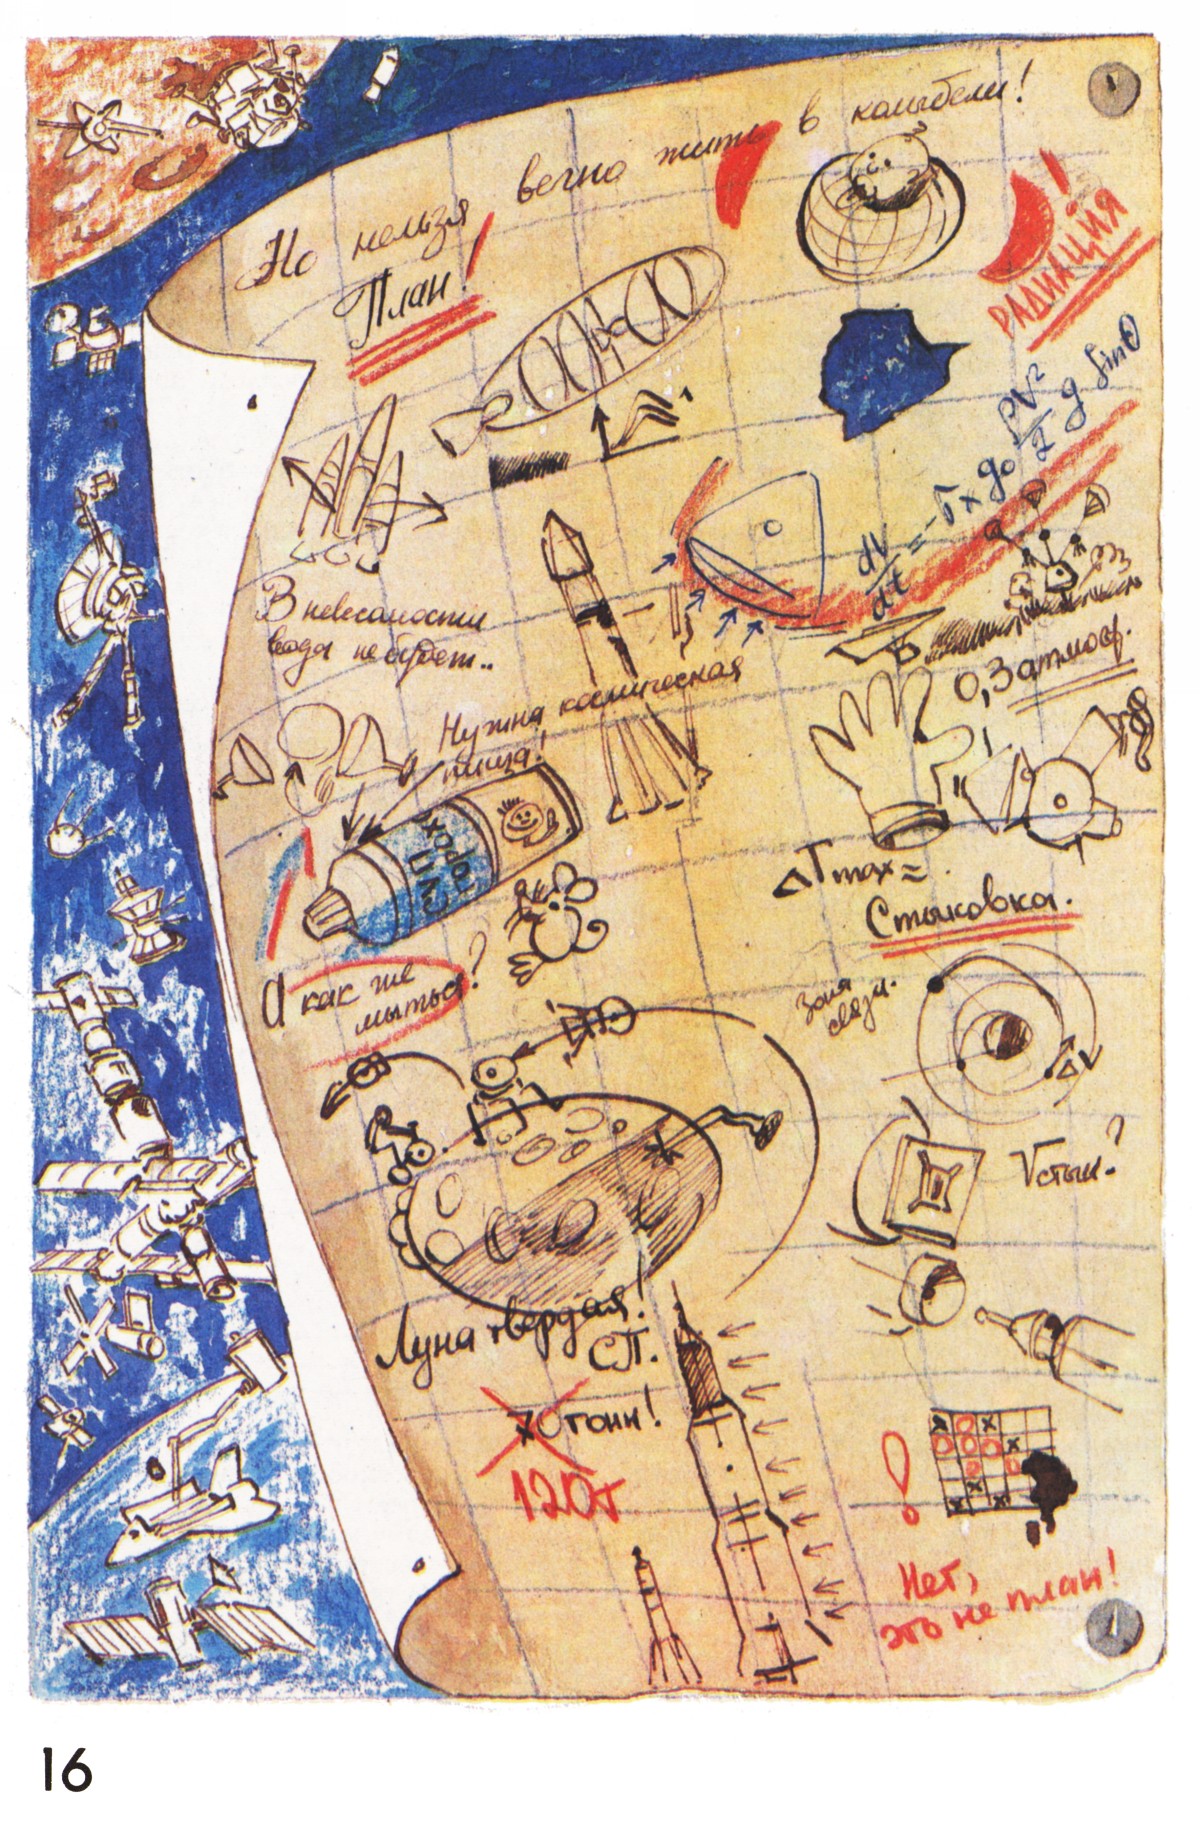 Но нельзя вечно жить в колыбели!
План!
РАДИАЦИЯ!
dV/dt = -σx до ρV²/2 g Sinθ
В невесомости
вода не будет..
Нужна космическая
пища!
СУП
ГОРОХ
0,3 атмосф.
ΔTmax =
Стыковка.
А как же
мыться?
Зона
связи.
ΔV
Vстык.?
Луна твердая!
СП.
70 тонн!
120т
Нет,
это не план!
16